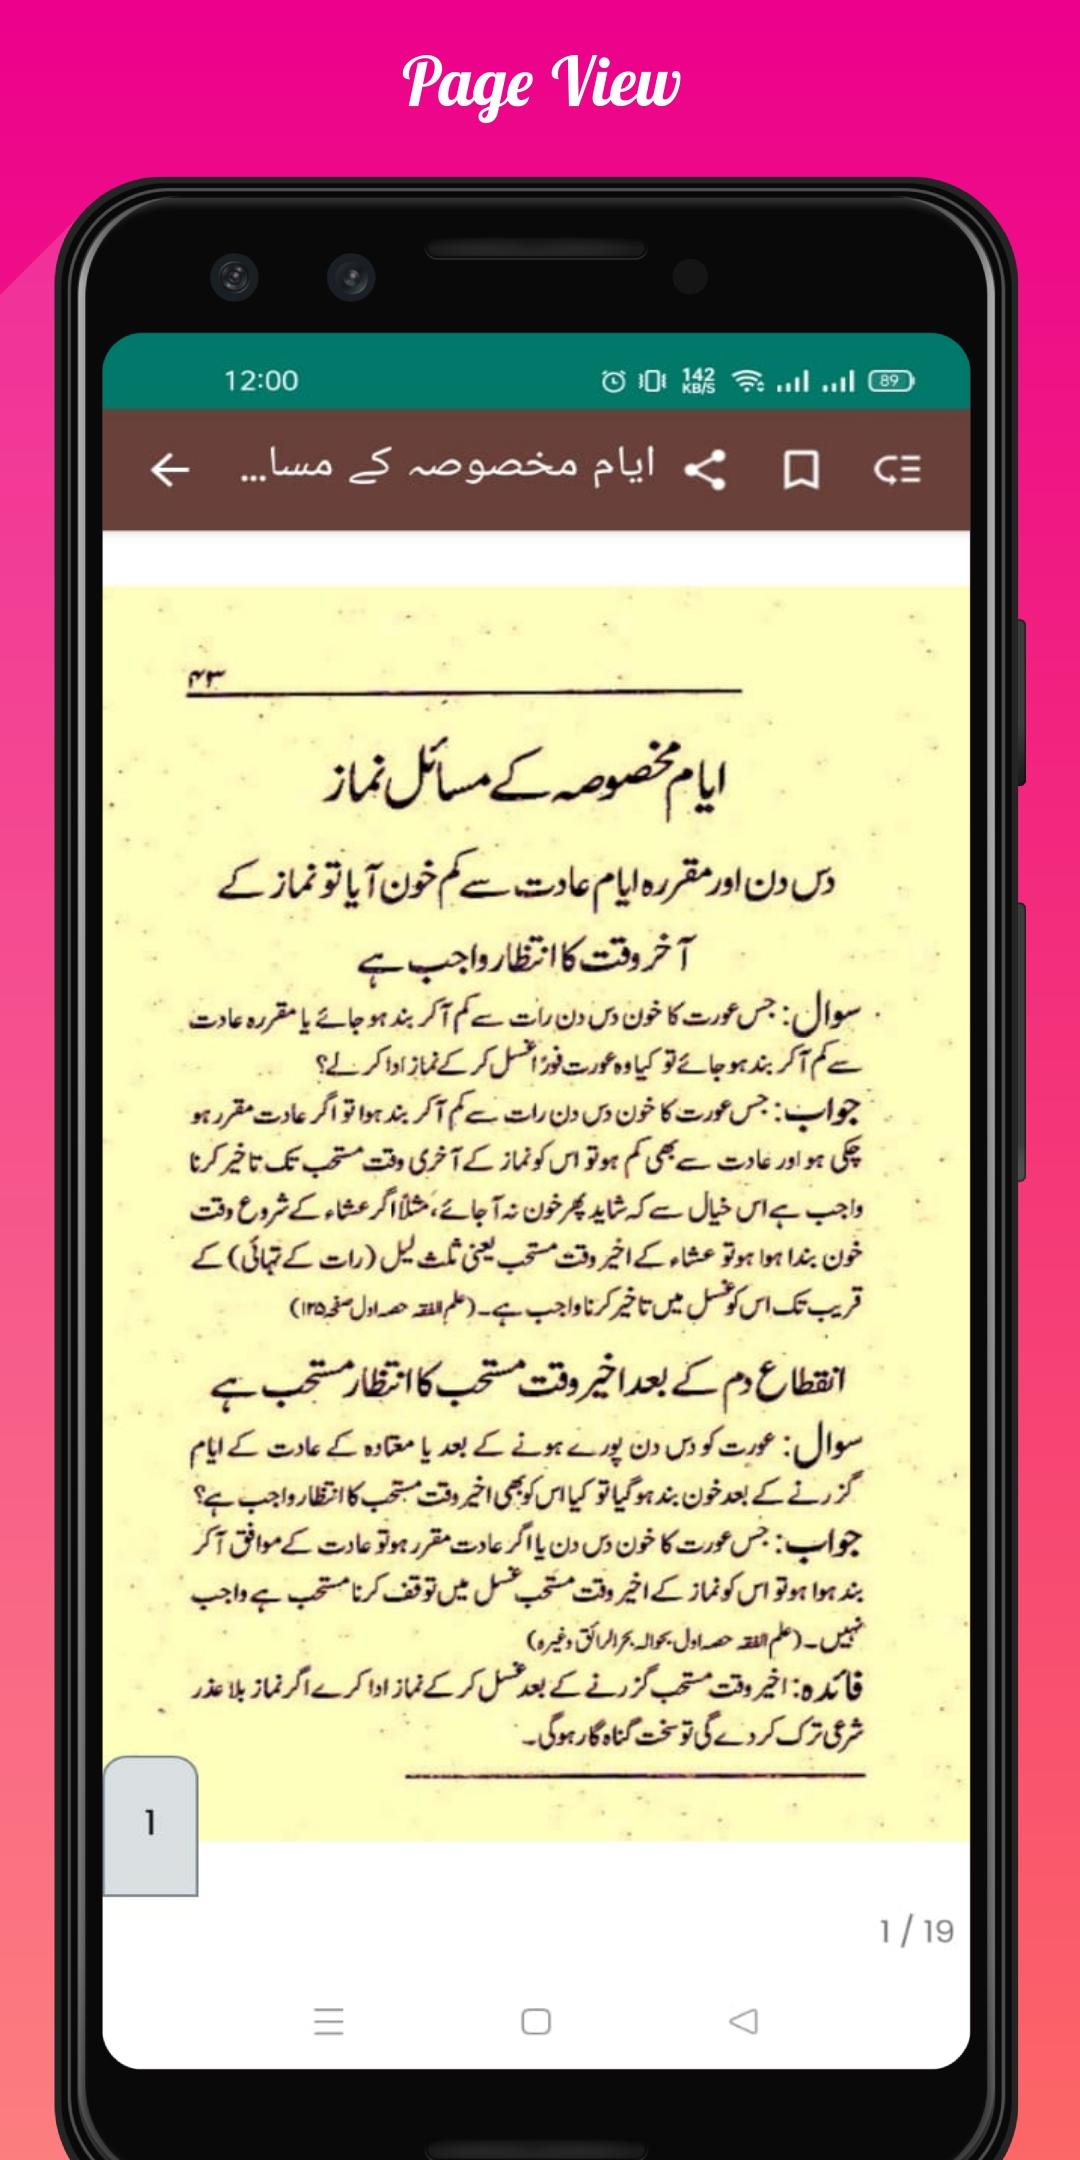 Page View
12:00
142
KB/S
89
ایام مخصوصہ کے مسا...
۴۳
ایام مخصوصہ کے مسائل نماز
دس دن اور مقررہ ایام عادت سے کم خون آیا تو نماز کے
آخر وقت کا انتظار واجب ہے
سوال: جس عورت کا خون دس دن رات سے کم آکر بند ہو جائے یا مقررہ عادت
سے کم آکر بند ہو جائے تو کیا وہ عورت فوراً غسل کر کے نماز ادا کر لے؟
جواب: جس عورت کا خون دس دن رات سے کم آکر بند ہوا تو اگر عادت مقرر ہو
چکی ہو اور عادت سے بھی کم ہو تو اس کو نماز کے آخری وقت مستحب تک تاخیر کرنا
واجب ہے اس خیال سے کہ شاید پھر خون نہ آجائے، مثلاً اگر عشاء کے شروع وقت
خون بندا ہوا ہو تو عشاء کے اخیر وقت مستحب یعنی ثلث لیل (رات کے تہائی) کے
قریب تک اس کو غسل میں تاخیر کرنا واجب ہے۔ (علم الفقہ حصہ اول صفحہ ۱۲۵)
انقطاع دم کے بعد اخیر وقت مستحب کا انتظار مستحب ہے
سوال: عورت کو دس دن پورے ہونے کے بعد یا معتادہ کے عادت کے ایام
گزرنے کے بعد خون بند ہو گیا تو کیا اس کو بھی اخیر وقت مستحب کا انتظار واجب ہے؟
جواب: جس عورت کا خون دس دن یا اگر عادت مقرر ہو تو عادت کے موافق آکر
بند ہوا ہو تو اس کو نماز کے اخیر وقت مستحب غسل میں توقف کرنا مستحب ہے واجب
نہیں۔ (علم الفقہ حصہ اول بحوالہ بحر الرائق وغیرہ)
فائدہ: اخیر وقت مستحب گزرنے کے بعد غسل کر کے نماز ادا کرے اگر نماز بلا عذر
شرعی ترک کر دے گی تو سخت گناہ گار ہوگی۔
1
1 / 19